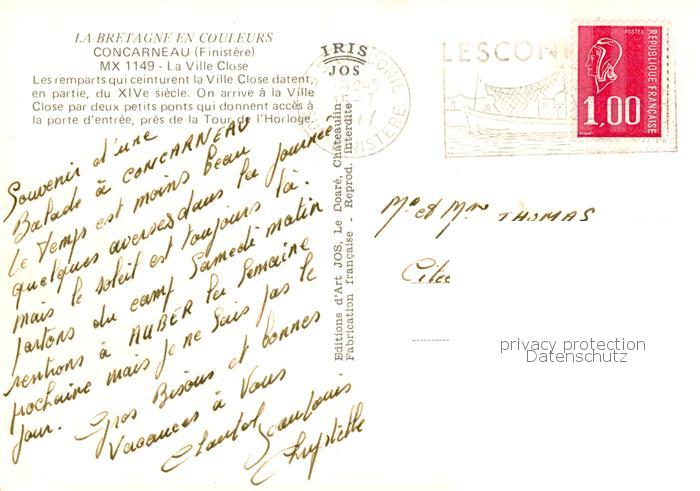 LA BRETAGNE EN COULEURS
CONCARNEAU (Finistère)
MX 1149 - La Ville Close
Les remparts qui ceinturent la Ville Close datent,
en partie, du XIVe siècle. On arrive à la Ville
Close par deux petits ponts qui donnent accès à
la porte d'entrée, près de la Tour de l'Horloge.
Souvenir d'une
Balade à CONCARNEAU
Le Temps est moins beau
quelques averses dans la journée
mais le soleil est toujours là.
partons du camp Samedi matin
rentrons à AUBER la Semaine
prochaine mais je ne sais pas le
jour. Gros Bisous et bonnes
Vacances à Vous
Chantal Jean Louis
Chrystelle
IRIS
JOS
Editions d'Art JOS, Le Doaré, Châteaulin
Fabrication française - Reprod. interdite
LESCONIL
FINISTERE
POSTES
REPUBLIQUE FRANÇAISE
1,00
Mr et Mme THOMAS
Cité
privacy protection
Datenschutz